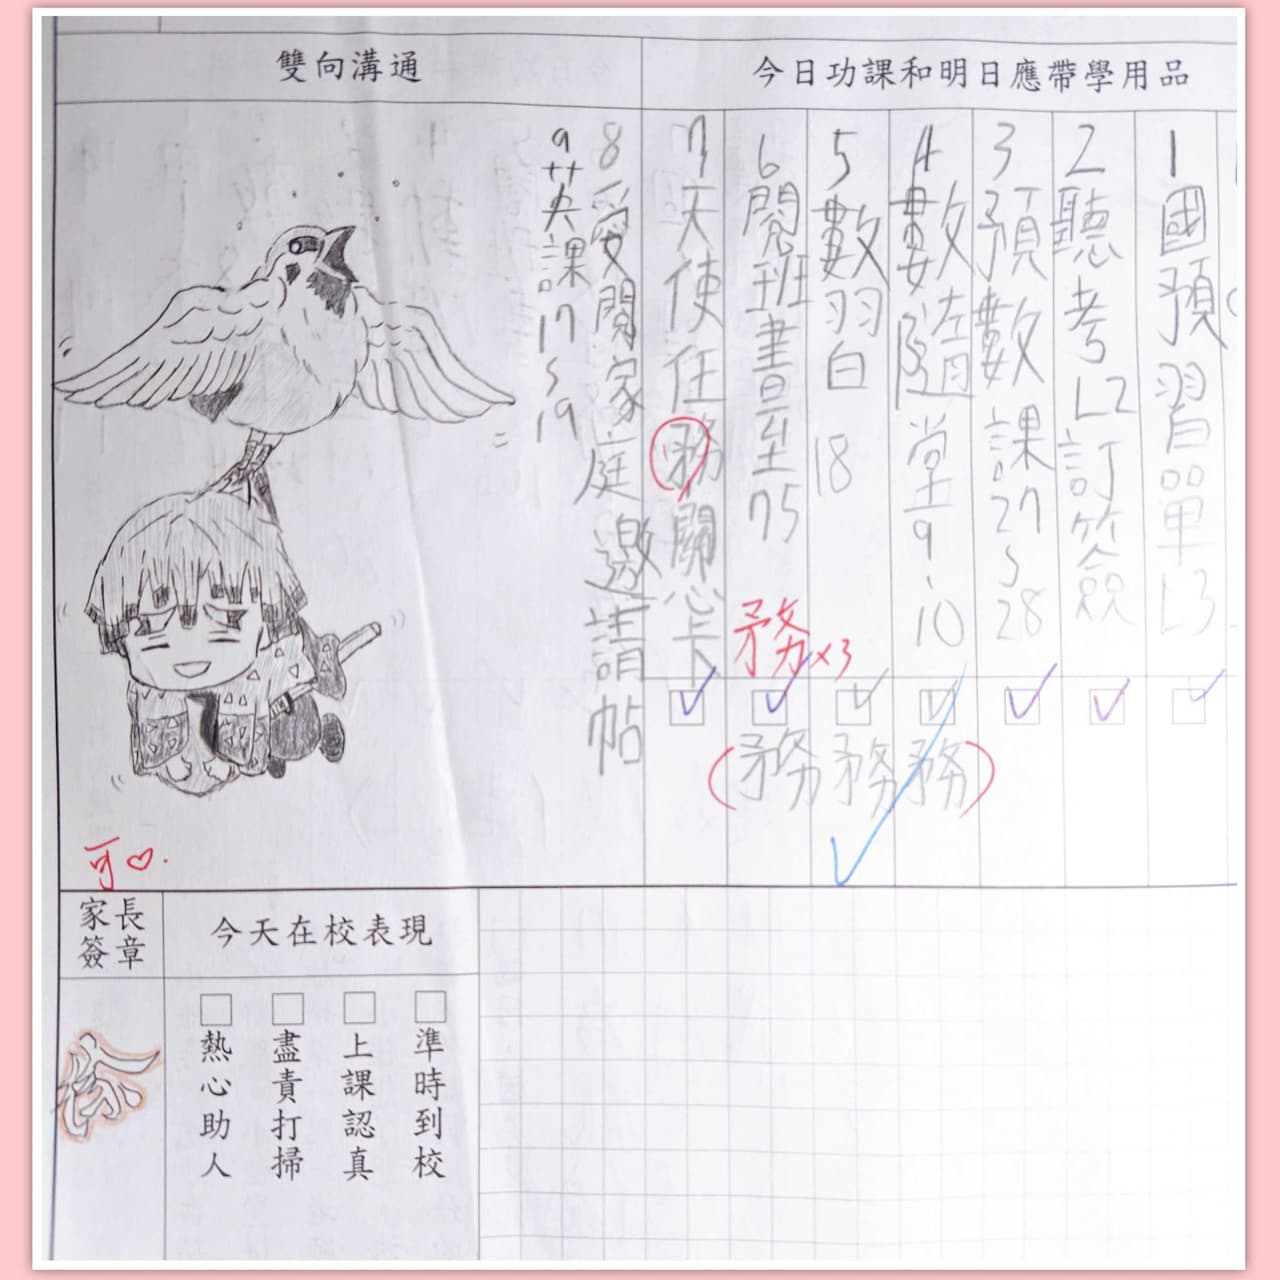 雙向溝通
今日功課和明日應帶學用品
1國預習單L3
2聽考L2訂簽
3預數課27~28
4數隨堂9、10
5數習白18
6閱班書至75
7天使任務關心卡
8愛閱家庭邀請帖
9英課17~19
務×3
(務務務)
可♡.
家長簽章
徐
今天在校表現
準時到校
上課認真
盡責打掃
熱心助人